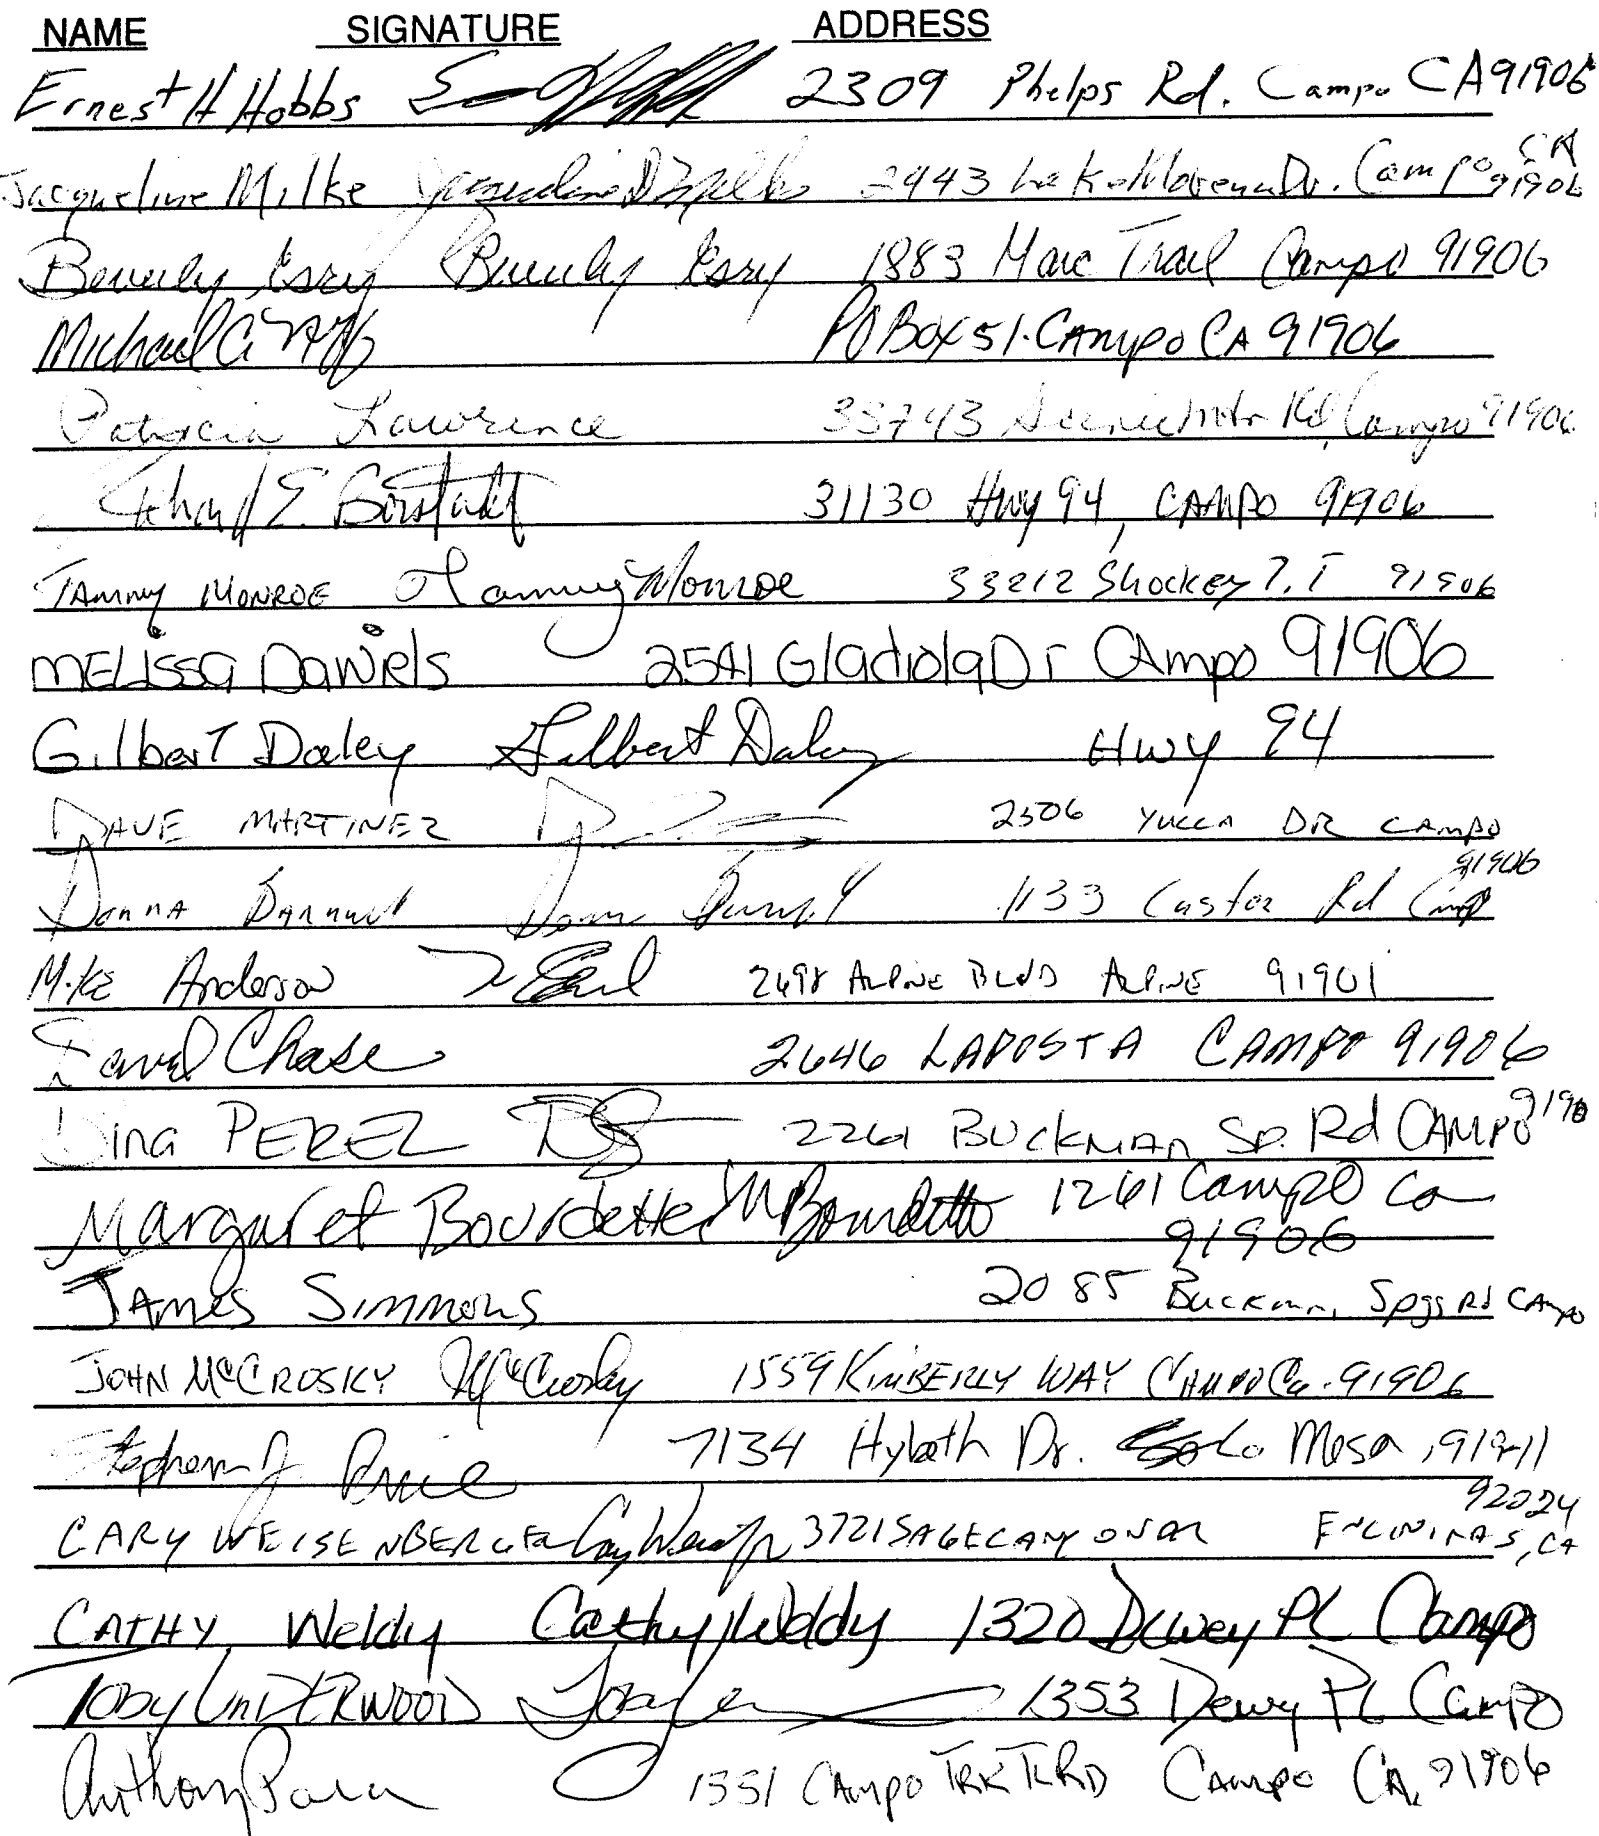 NAME SIGNATURE ADDRESS
Ernest H Hobbs 2309 Phelps Rd. Campo CA 91906
Jacqueline Milke Jacqueline D Milke 2943 Lake Morena Dr. Campo CA 91906
Beverly Esry Beverly Esry 1883 Marc Trail Campo 91906
Michael C. PO Box 51. Campo CA 91906
Patricia Lawrence 91906
E. 31130 Hwy 94, CAMPO 91906
TAMMY MONROE Tammy Monroe 33212 Shockey T.T 91906
MELISSA DaNiels 2541 Gladiola Dr Campo 91906
Gilbert Daley Gilbert Daley Hwy 94
DAVE MARTINEZ 2506 YUCCA DR CAMPO
91906
Donna 1133 Rd Camp
Mike Anderson ALPINE BLVD ALPINE 91901
David Chase 2646 LAPOSTA CAMPO 91906
Dina PEREZ 2261 BUCKMAN Sp. Rd CAMPO 9190
Margaret Bourdette M Bourdette 1261 Campo Ca
91906
JAMES SIMMONS 2085 Spgs Rd CAMPO
JOHN McCROSKY McCrosky 1559 KIMBERLY WAY CAMPO Ca. 91906
Stephen J Price 7134 Hybeth Dr. La Mesa, 91941
92024
CARY WEISENBERGER 3721 SAGE CANYON DR ENCINITAS, CA
CATHY Weldy Cathy Weldy 1320 Dewey PL Campo
TOBY UNDERWOOD 1353 Dewy PL Campo
Anthony 1351 CAMPO TRK TLRD CAMPO CA, 91906